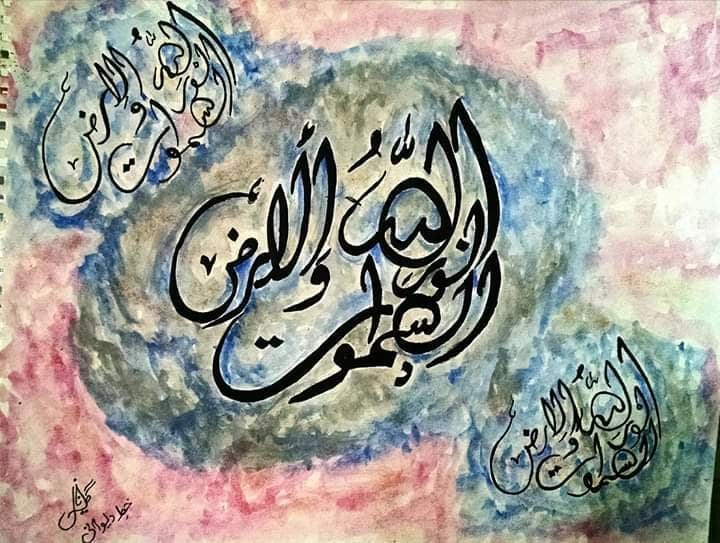 الله نور السموات والأرض
الله نور السموات والأرض
الله نور السموات والأرض
خط دیوانی